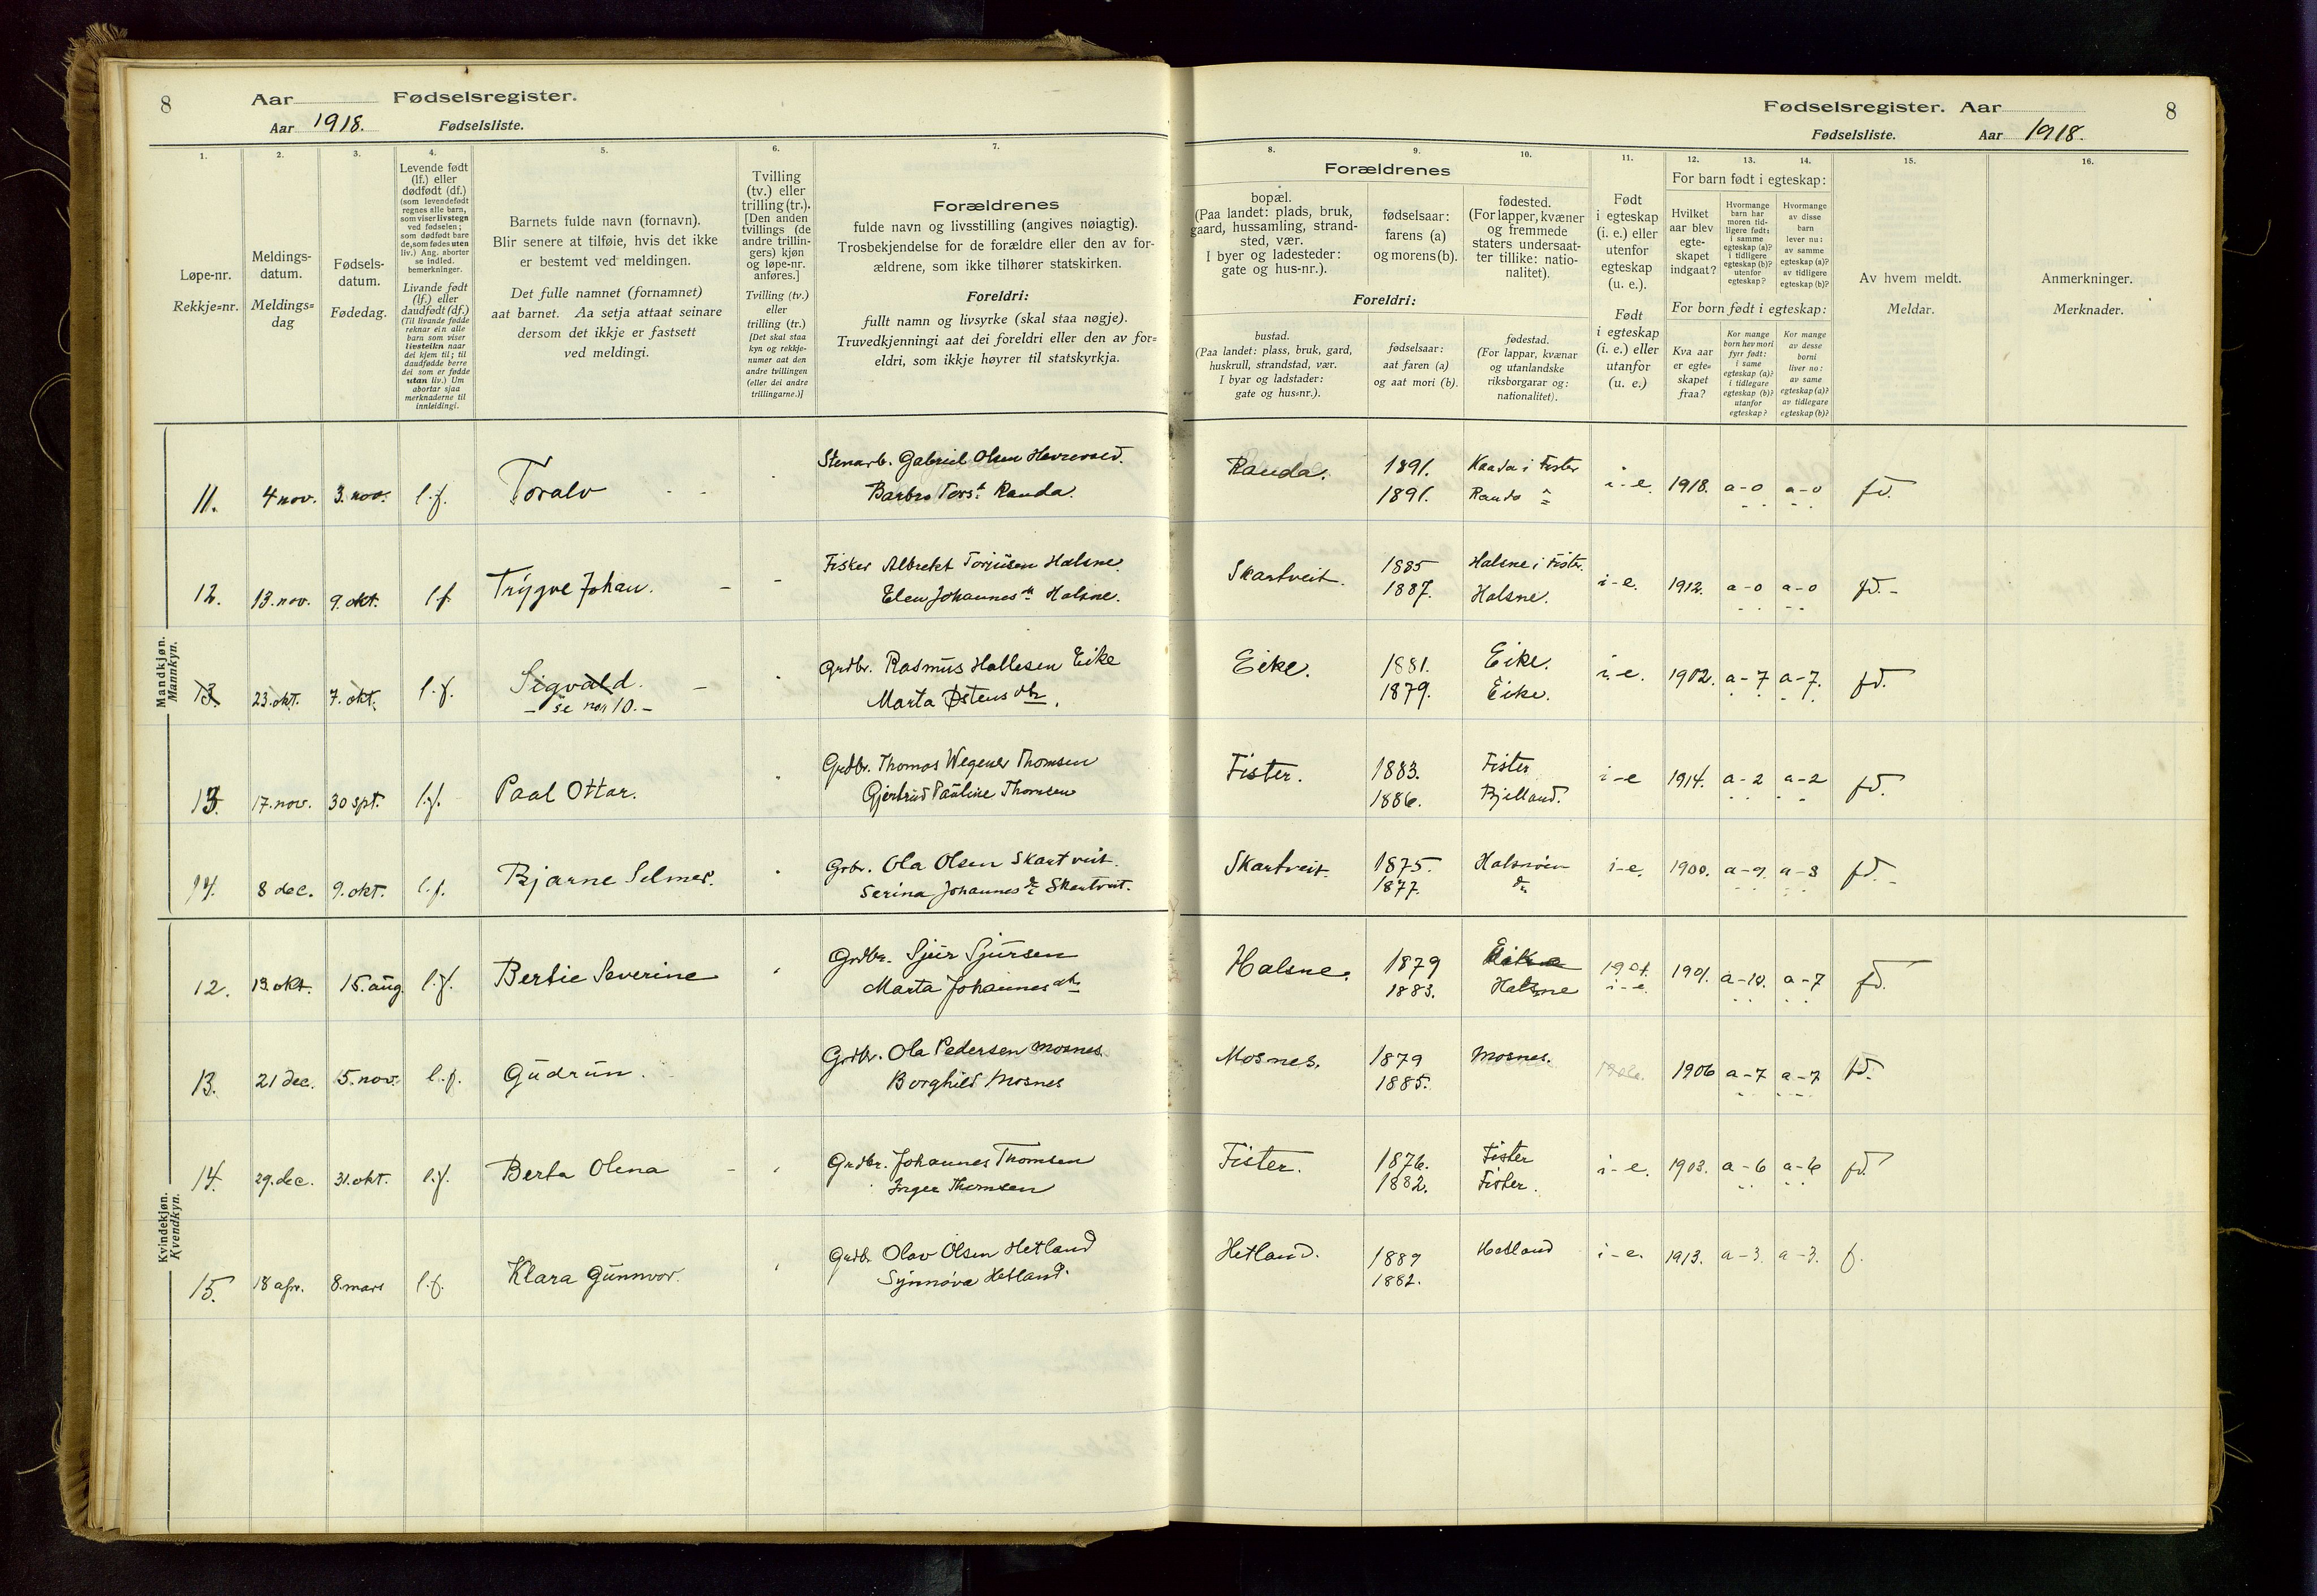 8
Aar Fødselsregister.
Aar 1918. Fødselsliste.
1.
Løpe-nr.
Rekkje=nr.
2.
Meldings-
datum.
Meldings=
dag
3.
Fødsels-
datum.
Fødedag.
4.
Levende født
(lf.) eller
dødfødt (df.)
(som levendefødt
regnes alle barn,
som viser livstegn
ved fødselen;
som dødfødt bare
de, som fødes uten
liv.) Ang. aborter
se indled.
bemerkninger.
Livande født
(lf.) eller
daudfødt (df.)
(Til livande fødde
reknar ein alle
barn som viser
livsteikn naar
dei kjem til; til
daudfødde berre
dei som er fødde
utan liv.) Um
abortar sjaa
merknaderne til
innleidingi.
5.
Barnets fulde navn (fornavn).
Blir senere at tilføie, hvis det ikke
er bestemt ved meldingen.
Det fulle namnet (fornamnet)
aat barnet. Aa setja attaat seinare
dersom det ikkje er fastsett
ved meldingi.
6.
Tvilling
(tv.) eller
trilling (tr.).
[Den anden
tvillings (de
andre trillin-
gers) kjøn
og løpe-nr.
anføres.]
Tvilling (tv.)
eller
trilling (tr.)
[Det skal staa
kyn og rekkje-
numer aat den
andre tvillingen
(eller dei andre
trillingarne.)]
7.
Forældrenes
fulde navn og livsstilling (angives nøiagtig).
Trosbekjendelse for de forældre eller den av for-
ældrene, som ikke tilhører statskirken.
Foreldri:
fullt namn og livsyrke (skal staa nøgje).
Truvedkjenningi aat dei foreldri eller den av for=
eldri, som ikkje høyrer til statskyrkja.
Mandkjøn.
Mannkyn.
11. 4 nov. 3. nov. l.f. Toralv - - Stenarb. Gabriel Olsen
Barbro Torsd. Randa.
12. 13. nov. 9. okt. l.f. Trygve Johan. - - Fisker Albrekt Torjusen Halsne.
Elen Johannesdr. Halsne.
13 23. okt. 7. okt. l.f. Sigvald. - Grdbr. Rasmus Hallesen Eike
- se nor 10. - Marta Østensdtr.
13. 17. nov. 30 spt. l.f. Paal Ottar. Grdbr. Thomas Wegener Thomsen
Gjertrud Pauline Thomsen
14. 8 dec. 9. okt. l.f. Bjarne Selmer. Grbr. Ola Olsen Skartveit.
Serina Johannesdr. Skartveit.
Kvindekjøn.
Kvendkyn.
12. 19. okt. 15. aug. l.f. Bertie Severine Grdbr. Sjur Sjursen
Marta Johannesdtr.
13. 21 dec. 5. nov. l.f. Gudrun. Grdbr. Ola Pedersen Mosnes.
Borghild Mosnes
14. 29. dec. 31. okt. l.f. Berta Olena - Grdbr. Johannes Thomsen
Inger Thomsen
15. 18 apr. 8. mars l.f. Klara Gunnvor. Grdb. Olav Olsen Hetland
Synnøva Hetland.
Fødselsregister. Aar 8
Fødselsliste. Aar 1918.
Forældrenes
8.
bopæl.
(Paa landet: plads, bruk,
gaard, hussamling, strand-
sted, vær.
I byer og ladesteder:
gate og hus-nr.).
9.
fødselsaar:
farens (a)
og morens (b).
10.
fødested.
(For lapper, kvæner
og fremmede
staters undersaat-
ter tillike: natio-
nalitet).
Foreldri:
bustad.
(Paa landet: plass, bruk, gard,
huskrull, strandstad, vær.
I byar og ladstader:
gate og hus=nr.).
fødselsaar:
aat faren (a)
og aat mori (b).
fødestad.
(For lappar, kvænar
og utanlandske
riksborgarar og:
nationalitet).
11.
Født
i egteskap
(i. e.) eller
utenfor
egteskap
(u. e.).
Født
i egteskap
(i. e.) eller
utanfor
(u. e.)
12. 13. 14.
For barn født i egteskap:
Hvilket
aar blev
egte-
skapet
indgaat?
Hvormange
barn har
moren tid-
ligere født:
i samme
egteskap (a)?
i tidligere
egteskap (b)?
utenfor
egteskap?
Hvormange
av disse
barn
lever nu:
av samme
egteskap (a)?
av tidligere
egteskap (b)?
For born født i egteskap:
Kva aar
er egte=
skapet
fraa?
Kor mange
born hev mori
fyrr født:
i same
egteskap (a)?
i tidlegare
egteskap (b)?
utanfor
egteskap?
Kor mange
av desse
borni
liver no:
av same
egteskap (a)?
av tidlegare
egteskap (b)?
15.
Av hvem meldt.
Meldar.
16.
Anmerkninger.
Merknader.
Randa. 1891. Kaada i Fister i-e. 1918. a-0 a-0 fd.
1891. Randa
Skartveit. 1885 Halsne i Fister. i-e. 1912. a-0 a-0 fd.-
1887. Halsne.
Eike. 1881. Eike. i-e. 1902. a-7 a-7. fd.
1879. Eike.
Fister. 1883. Fister i-e 1914. a-2 a-2 fd.
1886. Bjelland.
Skartveit. 1875. Halsnøien i-e. 1900. a-9. a-8 fd.-
1877. do
Halsne. 1879 Eike 1901. 1901. a-10. a-7 fd.
1883. Halsne i-e.
Mosnes. 1879 Mosnes. 1906. 1906 a-7 a-7 fd.
1885.
Fister. 1876. Fister i-e. 1903. a-6 a-6 fd.
1882. Fister.
Hetland. 1889 Hetland i-e. 1913. a-3. a-3. f.
1882.